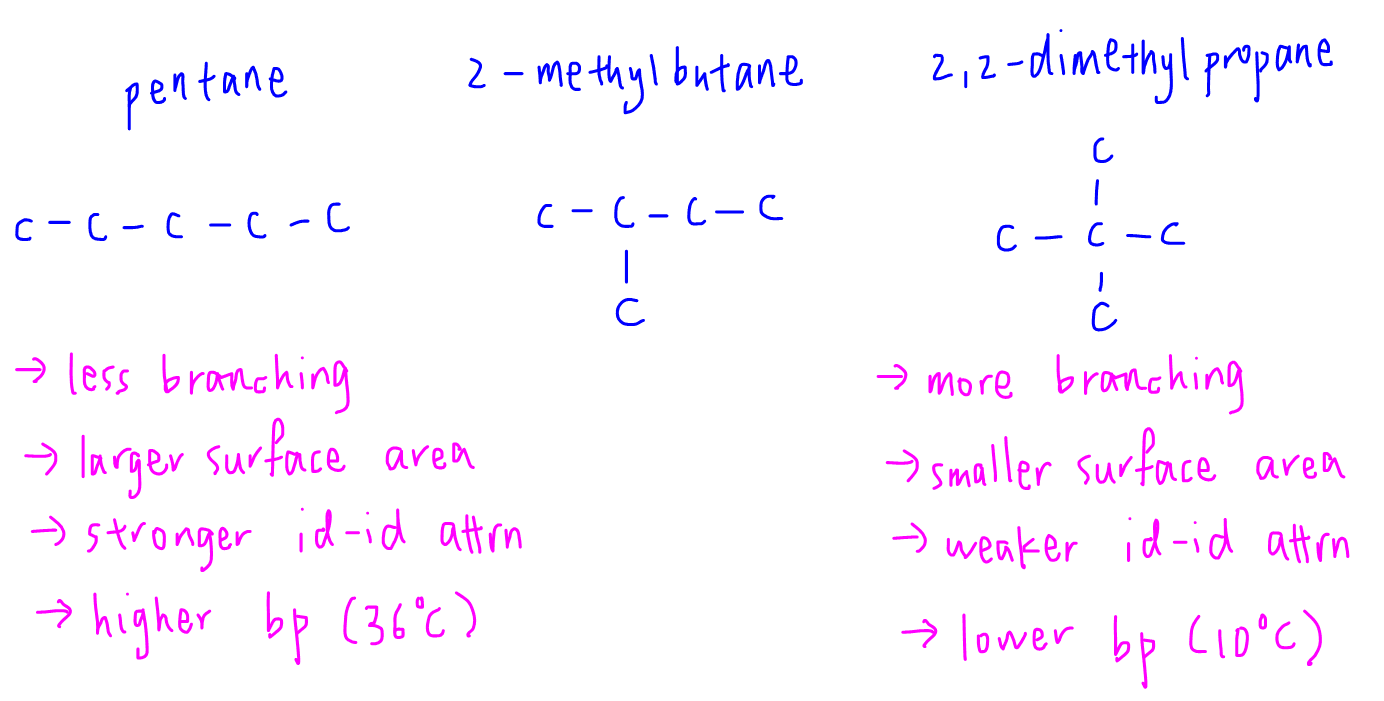 pentane
2-methylbutane
2,2-dimethylpropane
C
C-C-C-C-C
C-C-C-C
C-C-C
|
|
|
C
C
→ less branching
→ more branching
→ larger surface area
→ smaller surface area
→ stronger id-id attrn
→ weaker id-id attrn
→ higher bp (36°C)
→ lower bp (10°C)